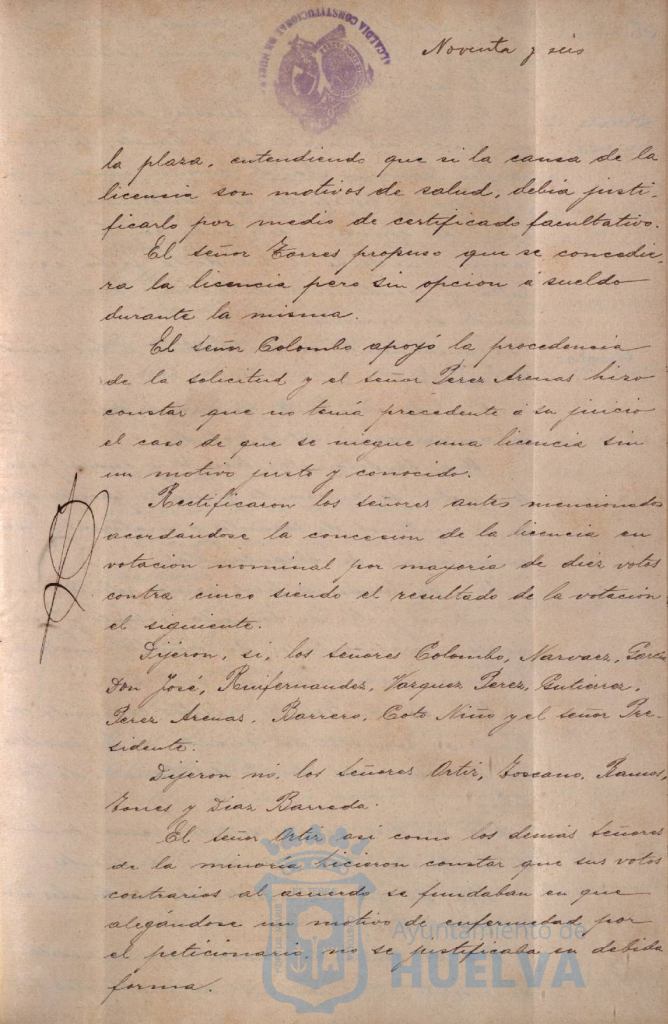 ALCALDIA CONSTITUCIONAL DE HUELVA
Noventa y seis
la plaza, entendiendo que si la causa de la
licencia son motivos de salud, debia justi-
ficarlo por medio de certificado facultativo.
El señor Torres propuso que se concedie-
ra la licencia pero sin opcion á sueldo
durante la misma.
El señor Colombo apoyó la procedencia
de la solicitud y el señor Perez Arenas hizo
constar que no tenia precedente á su juicio
el caso de que se niegue una licencia sin
un motivo justo y conocido.
Rectificaron los señores antes mencionados
acordándose la concesion de la licencia en
votacion nominal por mayoria de diez votos
contra cinco siendo el resultado de la votacion
el siguiente.
Dijeron, si, los señores Colombo, Narvaez, Garcia
Don José, Ruifernandez, Vazquez Perez, Gutierrez,
Perez Arenas, Barrero, Coto Niño y el señor Pre-
sidente.
Dijeron no, los señores Ortiz, Toscano, Ramos,
Torres y Diaz Barreda.
El señor Ortiz asi como los demas señores
de la minoria hicieron constar que sus votos
contrarios al acuerdo se fundaban en que
alegándose un motivo de enfermedad por
el peticionario, no se justificaba en debida
forma.
Ayuntamiento de
HUELVA